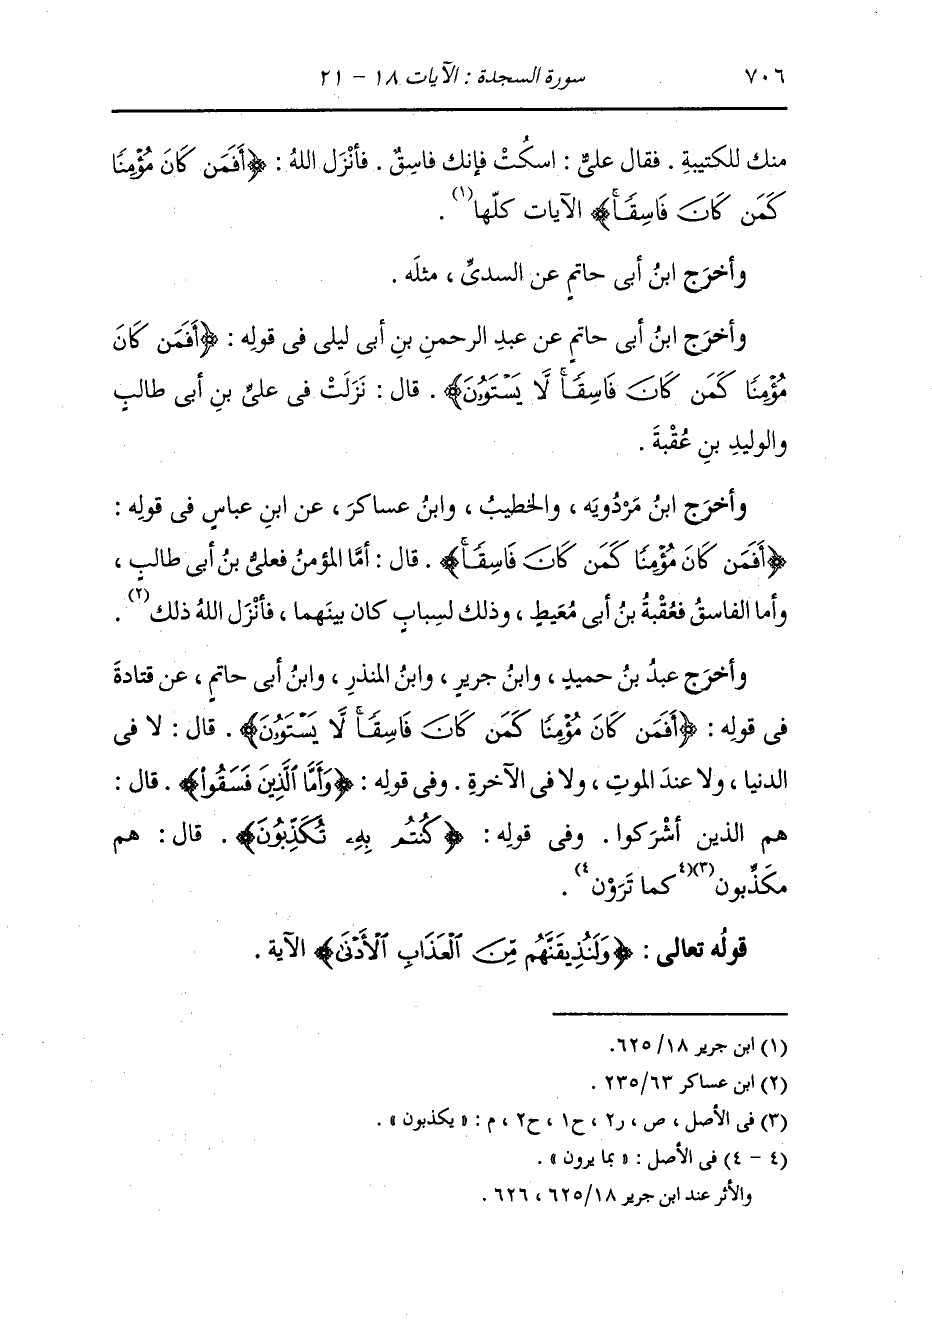 ٧٠٦ سورة السجدة : الآيات ١٨ - ٢١
منك للكتيبةِ . فقال علىٌّ : اسكُتْ فإنك فاسِقٌ . فأنْزَل اللهُ : ﴿أَفَمَن كَانَ مُؤْمِنًا
كَمَن كَانَ فَاسِقًاۚ﴾ الآيات كلّها(١) .
وأخرَج ابنُ أبى حاتمٍ عن السدىِّ ، مثلَه .
وأخرَج ابنُ أبى حاتمٍ عن عبدِ الرحمنِ بنِ أبى ليلى فى قولِه : ﴿أَفَمَن كَانَ
مُؤْمِنًا كَمَن كَانَ فَاسِقًاۚ لَّا يَسْتَوُۥنَ﴾ . قال : نَزَلَتْ فى علىِّ بنِ أبى طالبٍ
والوليدِ بنِ عُقْبةَ .
وأخرَج ابنُ مَرْدُويَه ، والخطيبُ ، وابنُ عساكرَ ، عن ابنِ عباسٍ فى قولِه :
﴿أَفَمَن كَانَ مُؤْمِنًا كَمَن كَانَ فَاسِقًاۚ﴾ . قال : أمَّا المؤمنُ فعلىُّ بنُ أبى طالبٍ ،
وأما الفاسقُ فعُقْبةُ بنُ أبى مُعَيطٍ ، وذلك لسِبابٍ كان بينَهما ، فأنْزَل اللهُ ذلك(٢) .
وأخرَج عبدُ بنُ حميدٍ ، وابنُ جريرٍ ، وابنُ المنذرِ ، وابنُ أبى حاتمٍ ، عن قتادةَ
فى قولِه : ﴿أَفَمَن كَانَ مُؤْمِنًا كَمَن كَانَ فَاسِقًاۚ لَّا يَسْتَوُۥنَ﴾ . قال : لا فى
الدنيا ، ولا عندَ الموتِ ، ولا فى الآخرةِ . وفى قولِه : ﴿وَأَمَّا ٱلَّذِينَ فَسَقُوا۟﴾ . قال :
هم الذين أشْرَكوا . وفى قولِه : ﴿كُنتُم بِهِۦ تُكَذِّبُونَ﴾ . قال : هم
مكَذِّبون(٣)(٤ كما تَرَوْن ٤) .
قولُه تعالى : ﴿وَلَنُذِيقَنَّهُم مِّنَ ٱلْعَذَابِ ٱلْأَدْنَىٰ﴾ الآية .
(١) ابن جرير ١٨/ ٦٢٥.
(٢) ابن عساكر ٦٣/ ٢٣٥ .
(٣) فى الأصل ، ص ، ر٢ ، ح١ ، ح٢ ، م : « يكذبون » .
(٤ - ٤) فى الأصل : « بما يرون » .
والأثر عند ابن جرير ١٨/ ٦٢٥ ، ٦٢٦ .